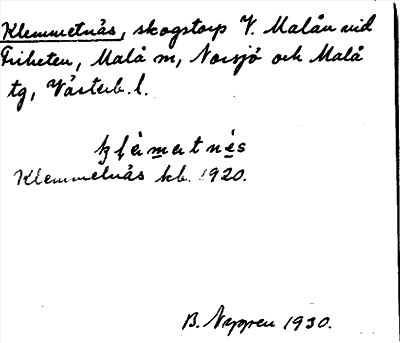 Klemmetnäs, skogstorp V. Malån vid
Friheten, Malå sn, Norsjö och Malå
tg, Västerb. l.
Klemmetnäs kb. 1920.
B. Nygren 1930.